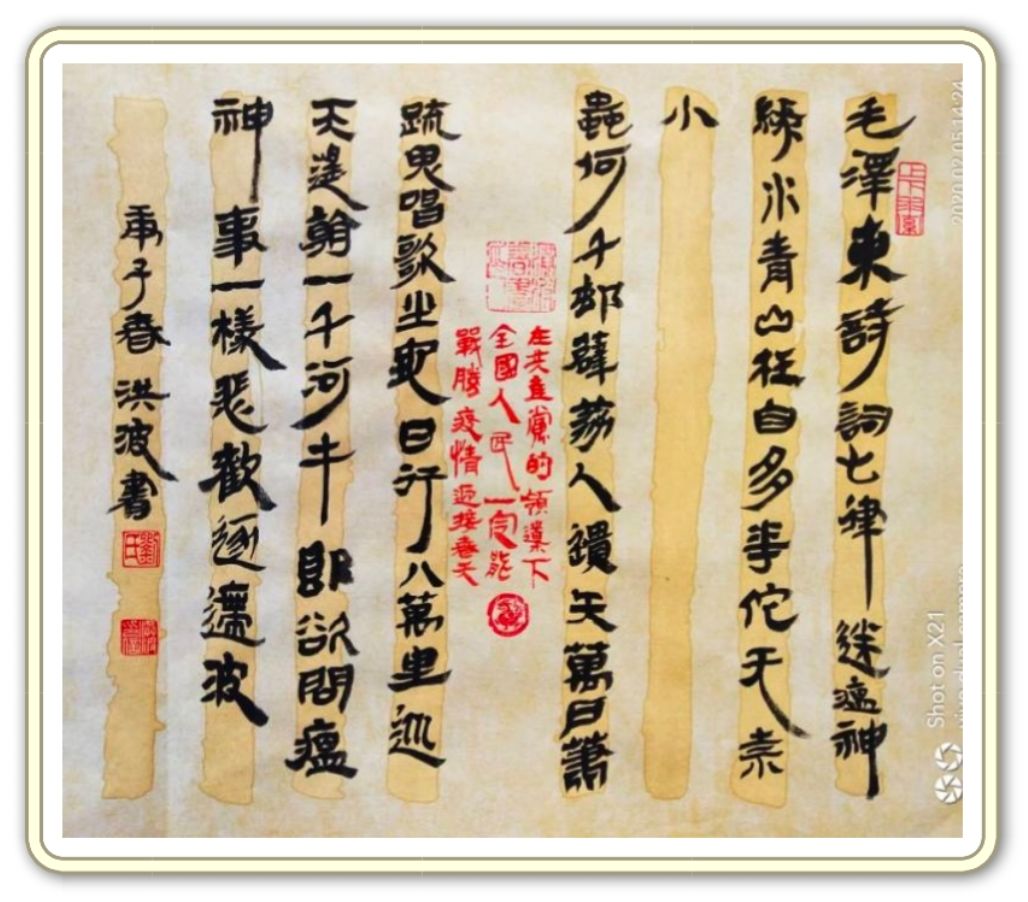 毛澤東詩詞七律 送瘟神
綠水青山枉自多華佗无奈
小
蟲何千邨薜荔人遺矢萬户蕭
在共產黨的領導下
全國人民一定能
戰勝疫情迎接春天
疏鬼唱歌坐地日行八萬里巡
天遥看一千河牛郎欲問瘟
神事一樣悲歡逐逝波
庚子春 洪波書
Shot on X21
vivo dual camera
2020.02.05 14:24